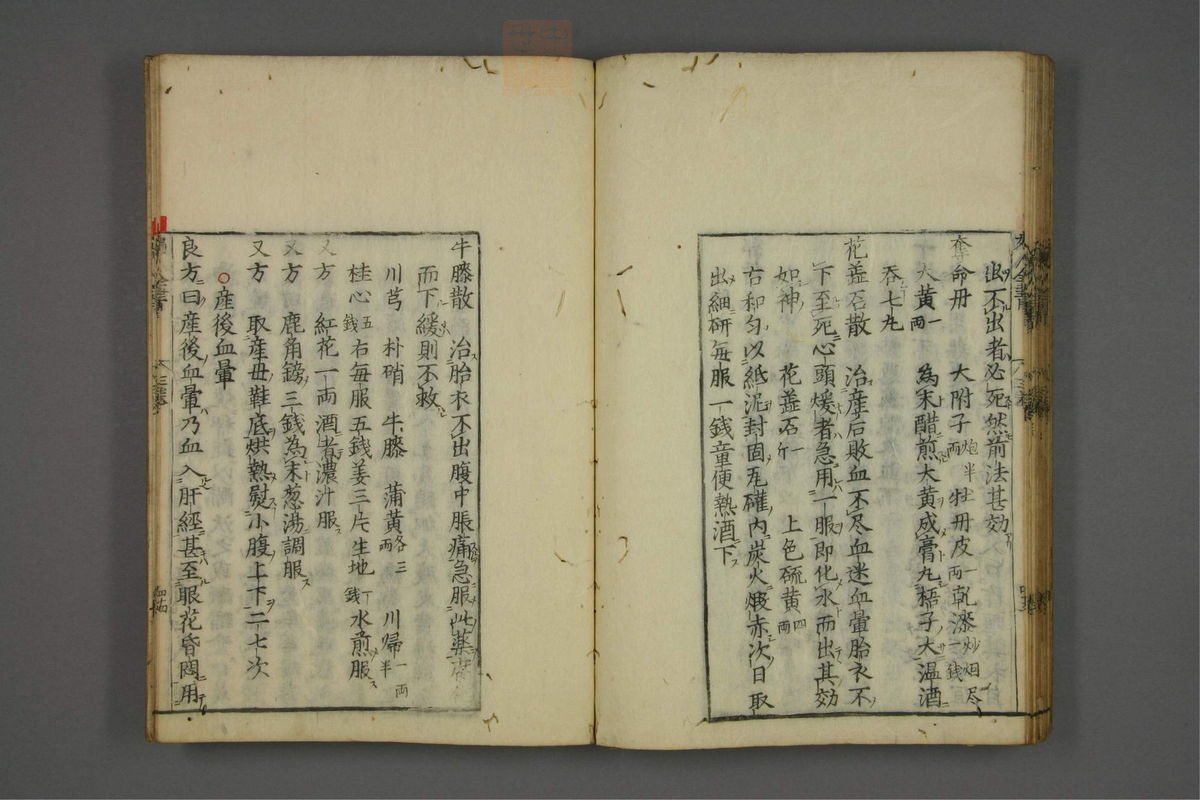 出不出者必死然前法甚効
奪命丹 大附子炮半両 牡丹皮一両 乾漆炒烟尽一錢
大黄一両 為末醋煎大黄成膏丸梧子大温酒
吞七丸
花蕋石散 治産后敗血不尽血迷血暈胎衣不
下至死心頭煖者急用一服即化水而出其効
如神 花蕋石一斤 上色硫黄四両
右和匀以紙泥封固瓦罐内炭火煅赤次日取
出細研毎服一錢童便熱酒下
牛膝散 治胎衣不出腹中脹痛急服此薬
而下緩則不救
川芎 朴硝 牛膝 蒲黄各三両 川帰一両半
桂心五錢 右毎服五錢姜三片生地一錢水煎服
又方 紅花一両酒煮濃汁服
又方 鹿角鎊三錢為末葱湯調服
又方 取産母鞋底烘熱熨小腹上下二七次
○産後血暈
良方曰産後血暈乃血入肝經甚至眼花昏悶用